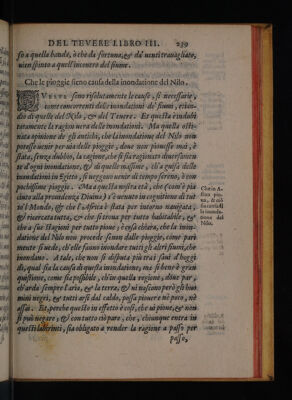 DEL TEVERE LIBRO III. 239
so à quella bande, ò che da fortuna, & da' uenti trauagliato,
uien spinto a quest'incontro del fiume.
Che le pioggie sieno causa della inondatione del Nilo.
QVESTE sono risolutamente le cause, si necessarie,
come concorrenti delle inondationi de' fiumi, etian-
dio di quelle del Nilo, & del Teuere. Et questa è indubi
tatamente la ragion uera delle inondationi. Ma quella osti-
nata opinione de gli antichi, che la inondatione del Nilo non
potesse uenir per uia delle pioggie, doue non pioue mai, è
stata, senza dubbio, la cagione, che si sia ragionato diuersamen
te d'ogni inondatione, & di quelle massime, che à causa delle
inondationi in Egitto, si ueggono uenir di tempo sereno, ò con
pochissime pioggie. Ma a questa nostra età, che (com'è pia
ciuto alla prouidenza Diuina) s'è uenuto in cognitione di tut
to'l Mondo, & che l'Africa è stata per intorno nauigata,
& ricercata tutta, & che si troua per tutto habitabile, &
che a sue stagioni per tutto pioue, è cosa chiara, che la inon-
datione del Nilo non procede senon dalle pioggie, come pari
mente si uede, ch'elle fanno inondare tutti gli altri fiumi, che
inondano. A tale, che non si disputa più tra i sauij d'hoggi
di, qual sia la causa di questa inondatione, ma si bene è gran
quistione, come sia possibile, ch'in quella regione, doue par,
ch'arda sempre l'aria, & la terra, & ui nascono però gli huo
mini negri, & tutti arsi dal caldo, possa piouere nè poco, nè
assai. Et, perche queste in effetto è così, che ui pioue, & non
si può negare, & con tutto ciò pare, che, chiunque entra in
questi laberinti, sia obligato a render la ragione a passo per
passo,
Che in A-
frica pio-
ua, & ciò
sia causa di
la inonda-
tione del
Nilo.